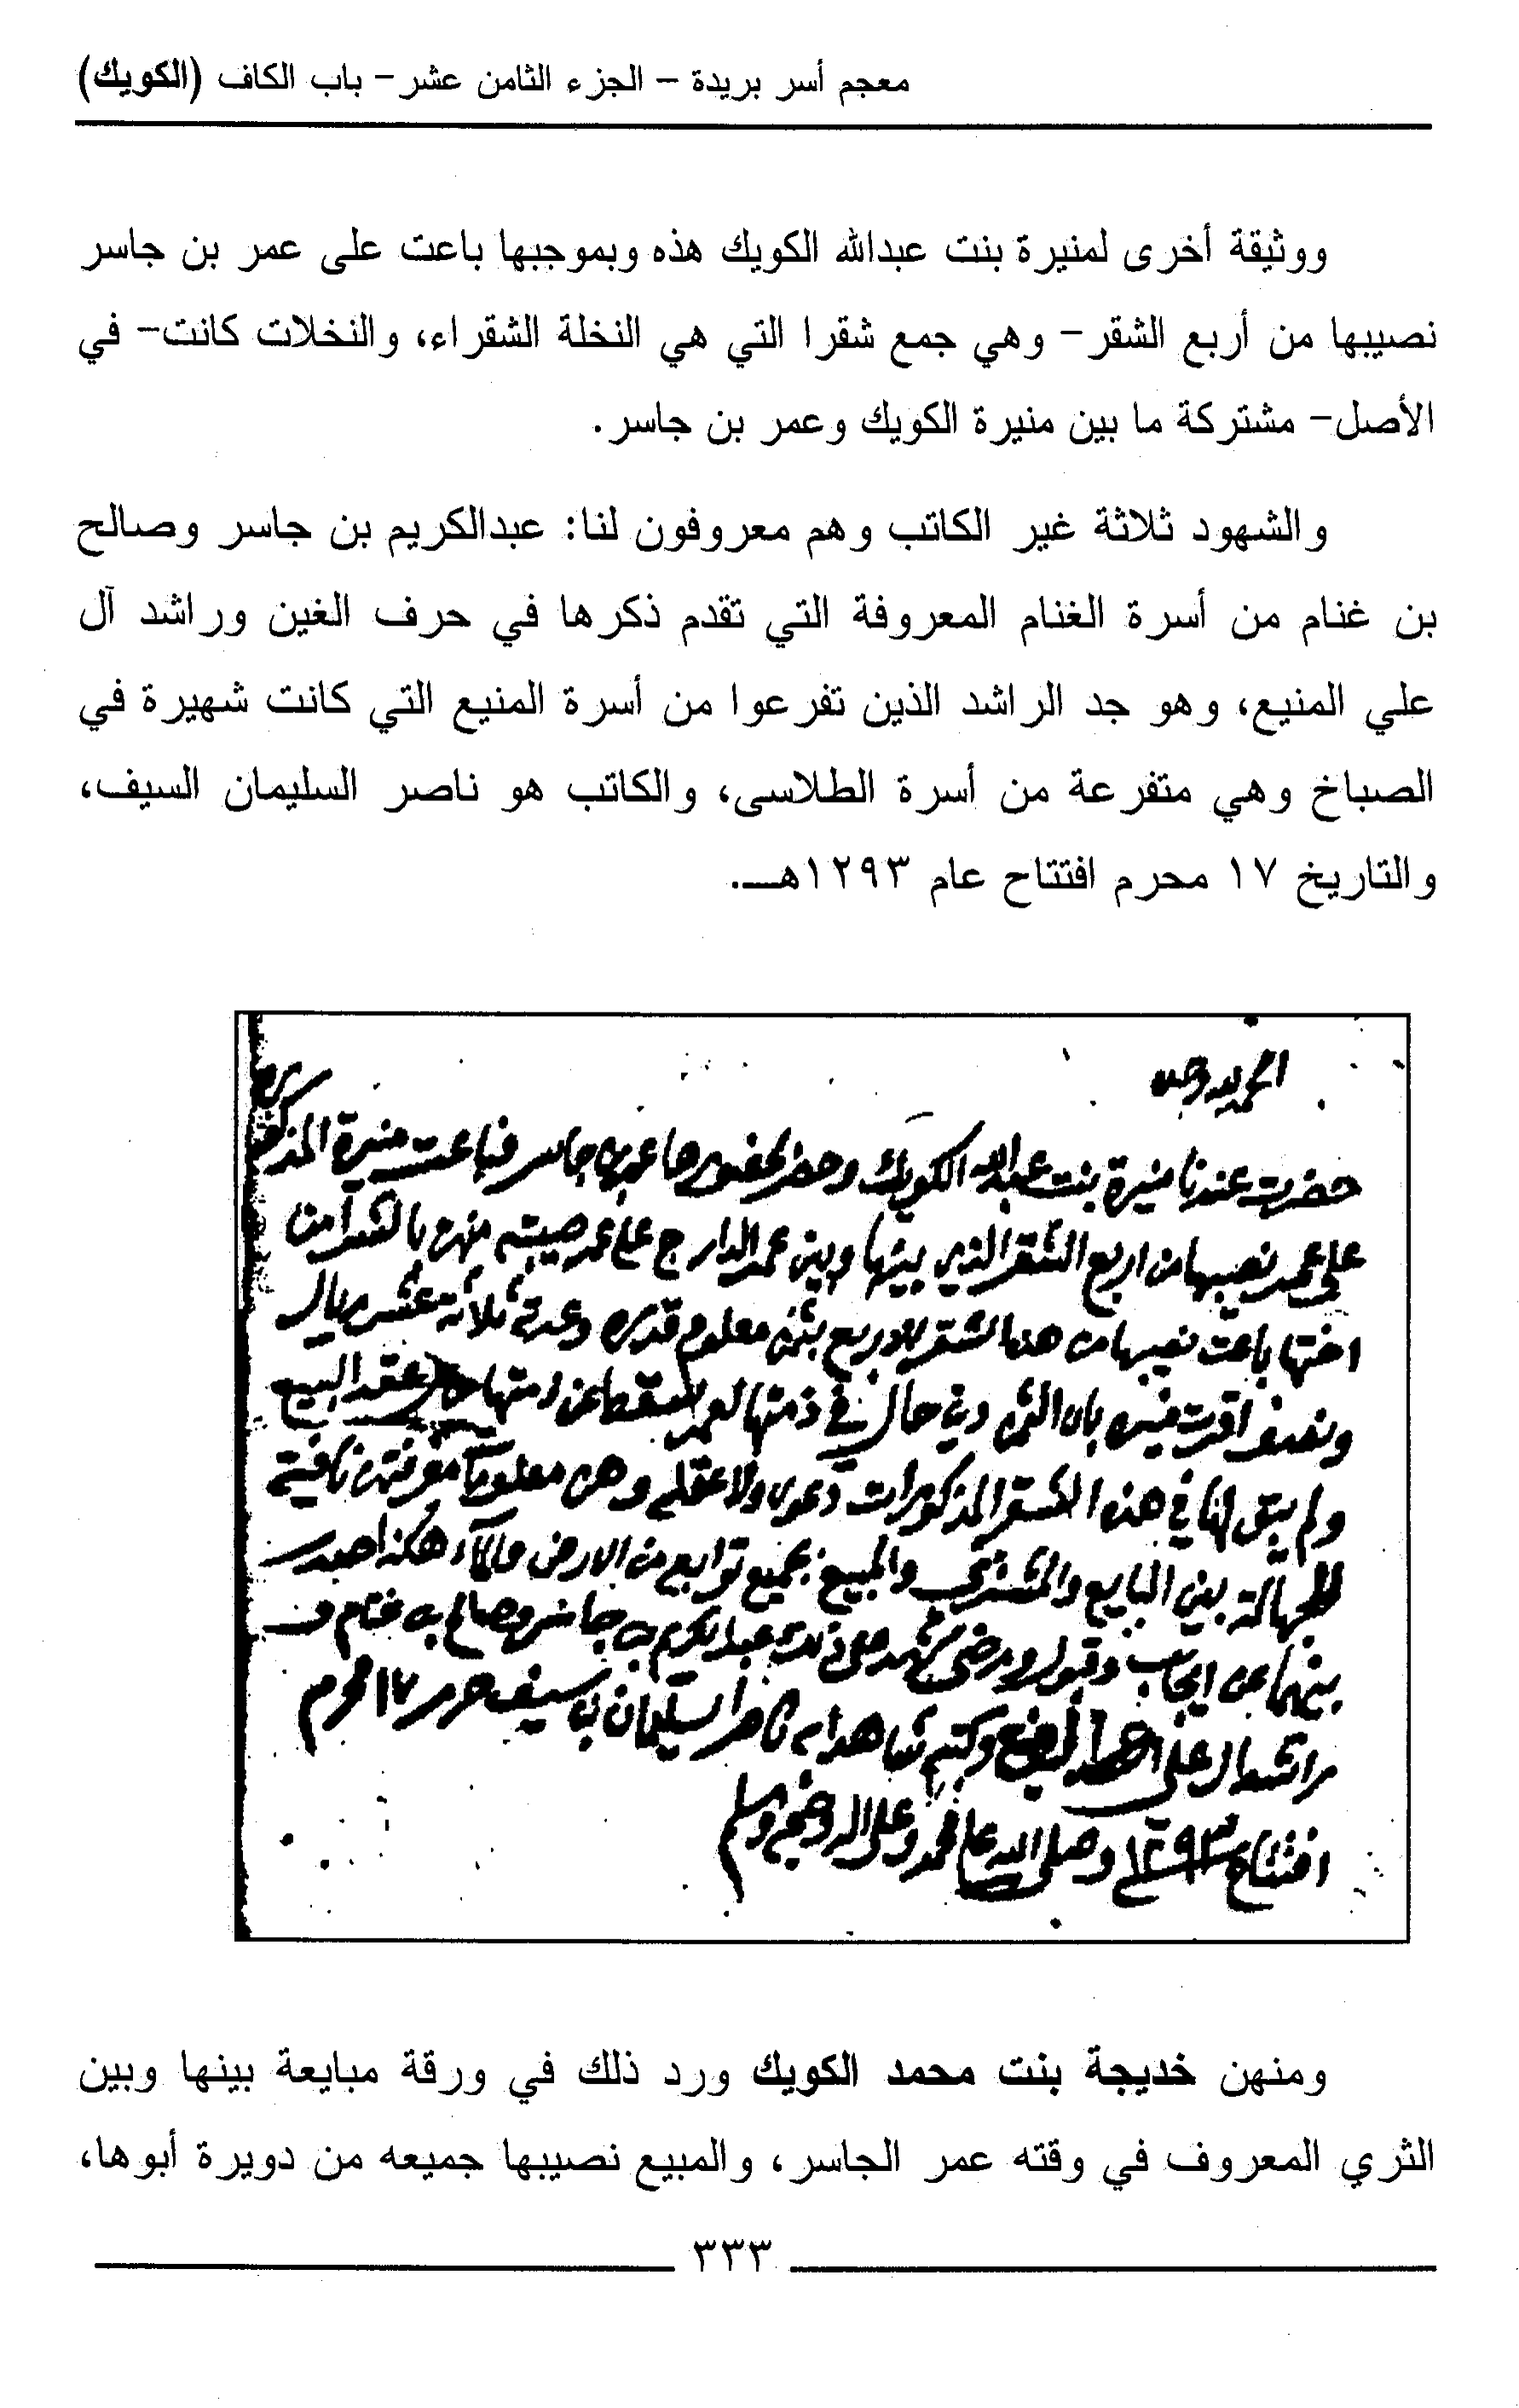 معجم أسر بريدة – الجزء الثامن عشر– باب الكاف (الكويك)
ووثيقة أخرى لمنيرة بنت عبدالله الكويك هذه وبموجبها باعت على عمر بن جاسر
نصيبها من أربع الشقر– وهي جمع شقرا التي هي النخلة الشقراء، والنخلات كانت– في
الأصل– مشتركة ما بين منيرة الكويك وعمر بن جاسر.
والشهود ثلاثة غير الكاتب وهم معروفون لنا: عبدالكريم بن جاسر وصالح
بن غنام من أسرة الغنام المعروفة التي تقدم ذكرها في حرف الغين وراشد آل
علي المنيع، وهو جد الراشد الذين تفرعوا من أسرة المنيع التي كانت شهيرة في
الصباخ وهي متفرعة من أسرة الطلاسى، والكاتب هو ناصر السليمان السيف،
والتاريخ ١٧ محرم افتتاح عام ١٢٩٣هـ.
الحمد لله وحده
حضرت عندنا منيرة بنت عبدالله الكويك وحضر لحضورها عمر بن جاسر فباعت منيرة المذكورة
على عمر نصيبها من اربع الشقر الذي بينها وبين عمر الدارج على عمر منهن بالشرا من
اختها باعت نصيبها من هذا الشقر الاربع بثمن معلوم قدره وعدته ثلاثة عشر ريال
ونصف اقرت منيره بان الثمن دين حال في ذمتها لعمر سقط عن ذمتها عقد البيع
ولم يبق لها في هذه الشقر المذكورات دعوى ولا علقه وهن معلومات معرفتهن نافية
للجهالة بين البايع والمشتري والمبيع بجميع توابع من الارض والماء هكذا صدر
بينهما عن ايجاب وقبول ورضى شهد على ذلك عبدالكريم بن جاسر وصالح بن غنام و
راشد ال علي المنيع وكتبه شاهدا به ناصر السليمان بن سيف حرر ١٧ محرم
افتتاح ١٢٩٣ وصلى الله على محمد وعلى اله وصحبه وسلم
ومنهن خديجة بنت محمد الكويك ورد ذلك في ورقة مبايعة بينها وبين
الثري المعروف في وقته عمر الجاسر، والمبيع نصيبها جميعه من دويرة أبوها،
٣٣٣